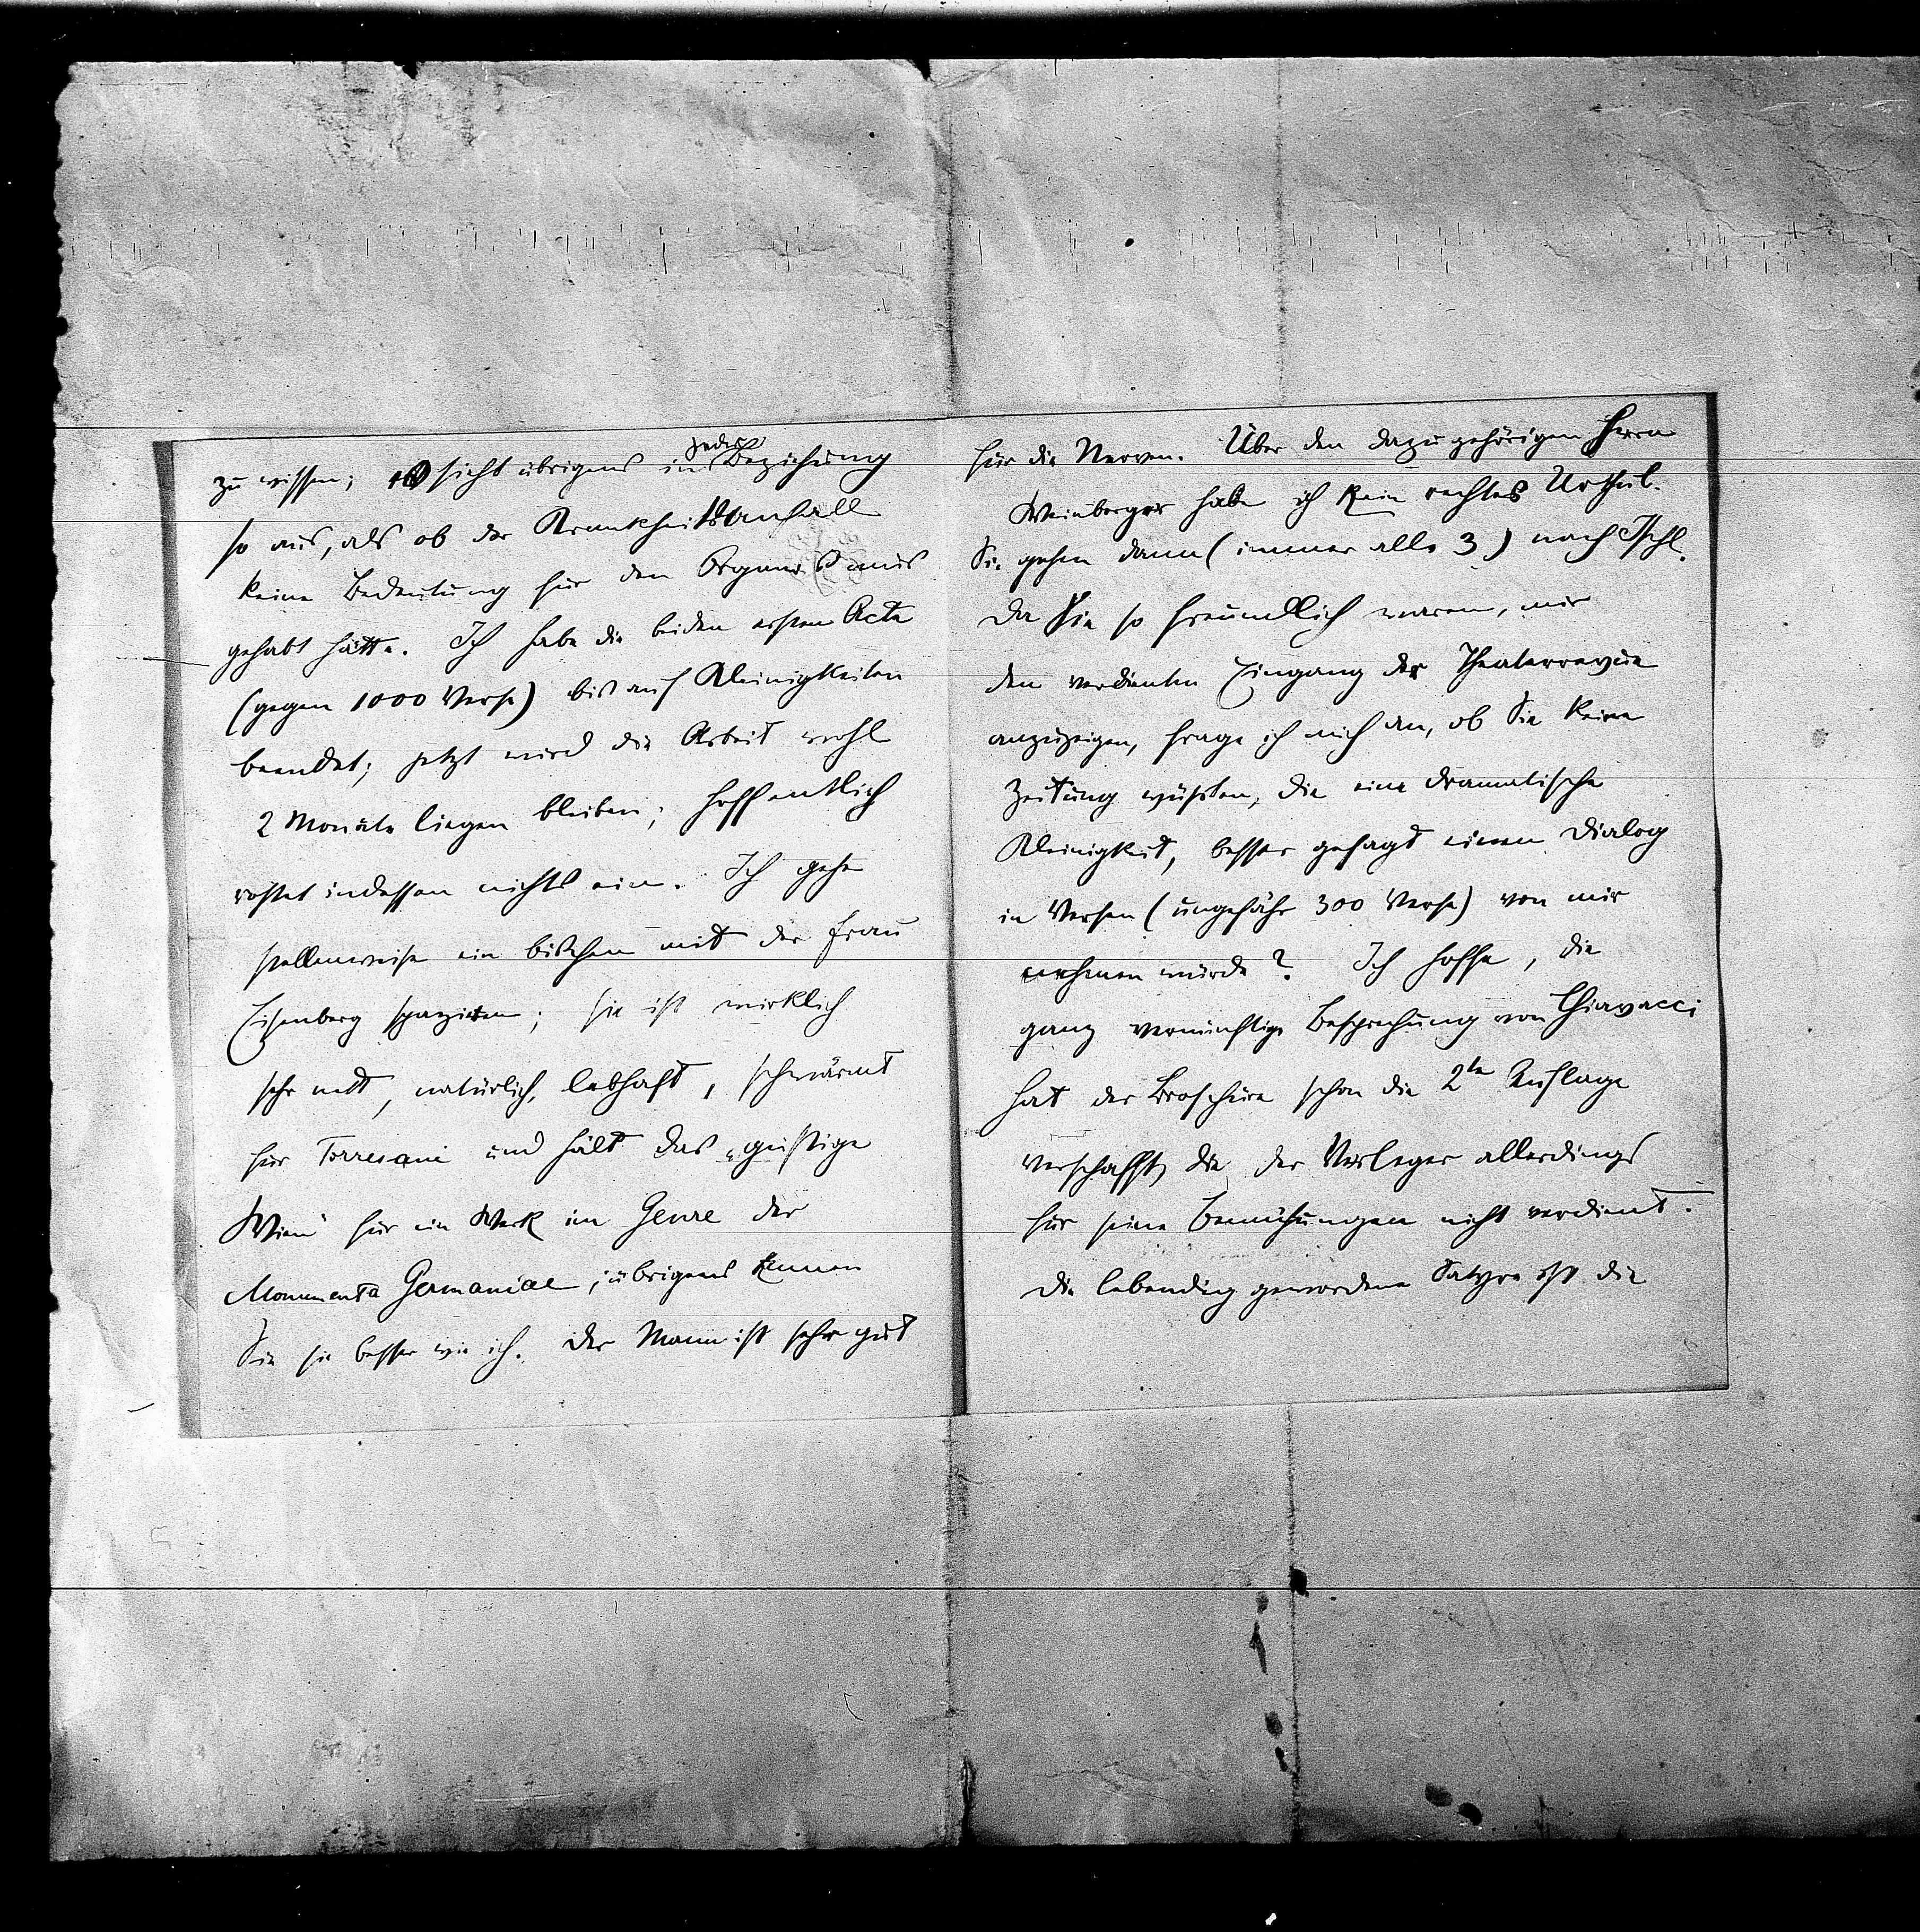 zu wissen; es sieht übrigens in jeder Beziehung
so aus, als ob der Krankheitsanfall
keine Bedeutung für den Organismus
gehabt hätte. Ich habe die beiden ersten Acte
(gegen 1000 Verse) bis auf Kleinigkeiten
beendet; jetzt wird die Arbeit wohl
2 Monate liegen bleiben; hoffentlich
rostet indessen nichts ein. Ich gehe
stellenweise ein bischen mit der Frau
Eisenberg spazieren; sie ist wirklich
sehr nett, natürlich, lebhaft, schwärmt
für Torresani und hält das „geistige
Wien“ für ein Werk im Genre der
Monumenta Germaniae; übrigens kennen
Sie sie besser wie ich. Der Mann ist sehr gut
für die Nerven. Über den dazugehörigen Herrn
Weinberger habe ich kein rechtes Urtheil.
Sie gehen dann (immer alle 3) nach Ischl.
Da Sie so freundlich waren, mir
den verdienten Eingang der Theaterrevue
anzuzeigen, frage ich mich an, ob Sie keine
Zeitung wüßten, die eine dramatische
Kleinigkeit, besser gesagt einen Dialog
in Versen (ungefähr 300 Verse) von mir
nehmen würde? Ich hoffe, die
ganz vernünftige Besprechung von Chiavacci
hat der Broschüre schon die 2te Auflage
verschafft, die der Verleger allerdings
für seine Bemühungen nicht verdient.
Die lebendig gewordene Satyre ist die